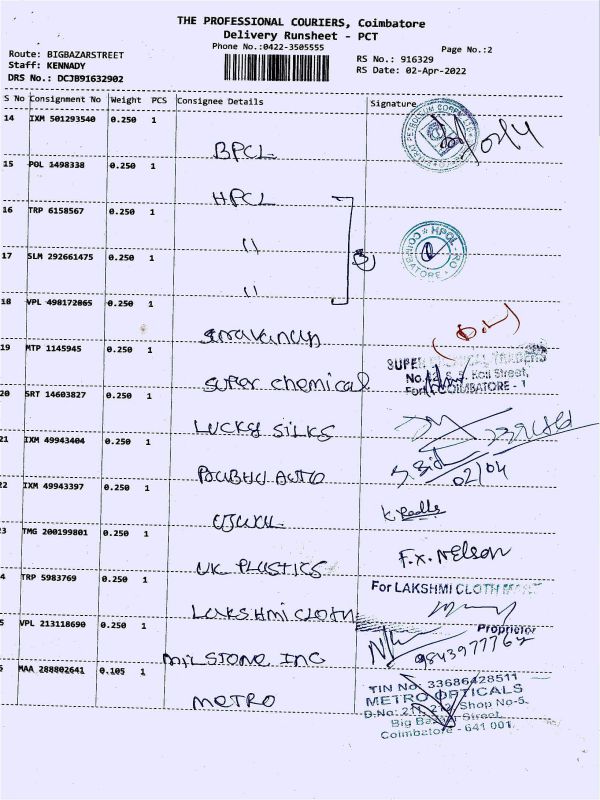 THE PROFESSIONAL COURIERS, Coimbatore
Delivery Runsheet - PCT
Phone No.:0422-3505555
Page No.:2
Route: BIGBAZARSTREET
Staff: KENNADY
DRS No.: DCJB91632902
RS No.: 916329
RS Date: 02-Apr-2022
S No Consignment No Weight PCS Consignee Details Signature
14 IXM 501293540 0.250 1
BPCL
15 POL 1498338 0.250 1
HPCL
16 TRP 6158567 0.250 1
"
17 SLM 292661475 0.250 1
3
HPCL RO
COIMBATORE
"
18 VPL 498172865 0.250 1
19 MTP 1145945 0.250 1
SUPER CHEMICAL TRADERS
Koil Street,
COIMBATORE - 1
super chemical
20 SRT 14603827 0.250 1
LUCKY SILKS
21 IXM 49943404 0.250 1
02/04
PRABHU AUTO
22 IXM 49943397 0.250 1
3 TMG 200199801 0.250 1
F.X. Nelson
UK PLASTICS
4 TRP 5983769 0.250 1
For LAKSHMI CLOTH MART
LAKSHMI CLOTH
5 VPL 213118690 0.250 1
Proprietor
MILSTONE INC
6 MAA 288802641 0.105 1
METRO
TIN No: 33686428511
METRO OPTICALS
D.No: 211, 212, Shop No-5,
Big Bazaar Street,
Coimbatore - 641 001.